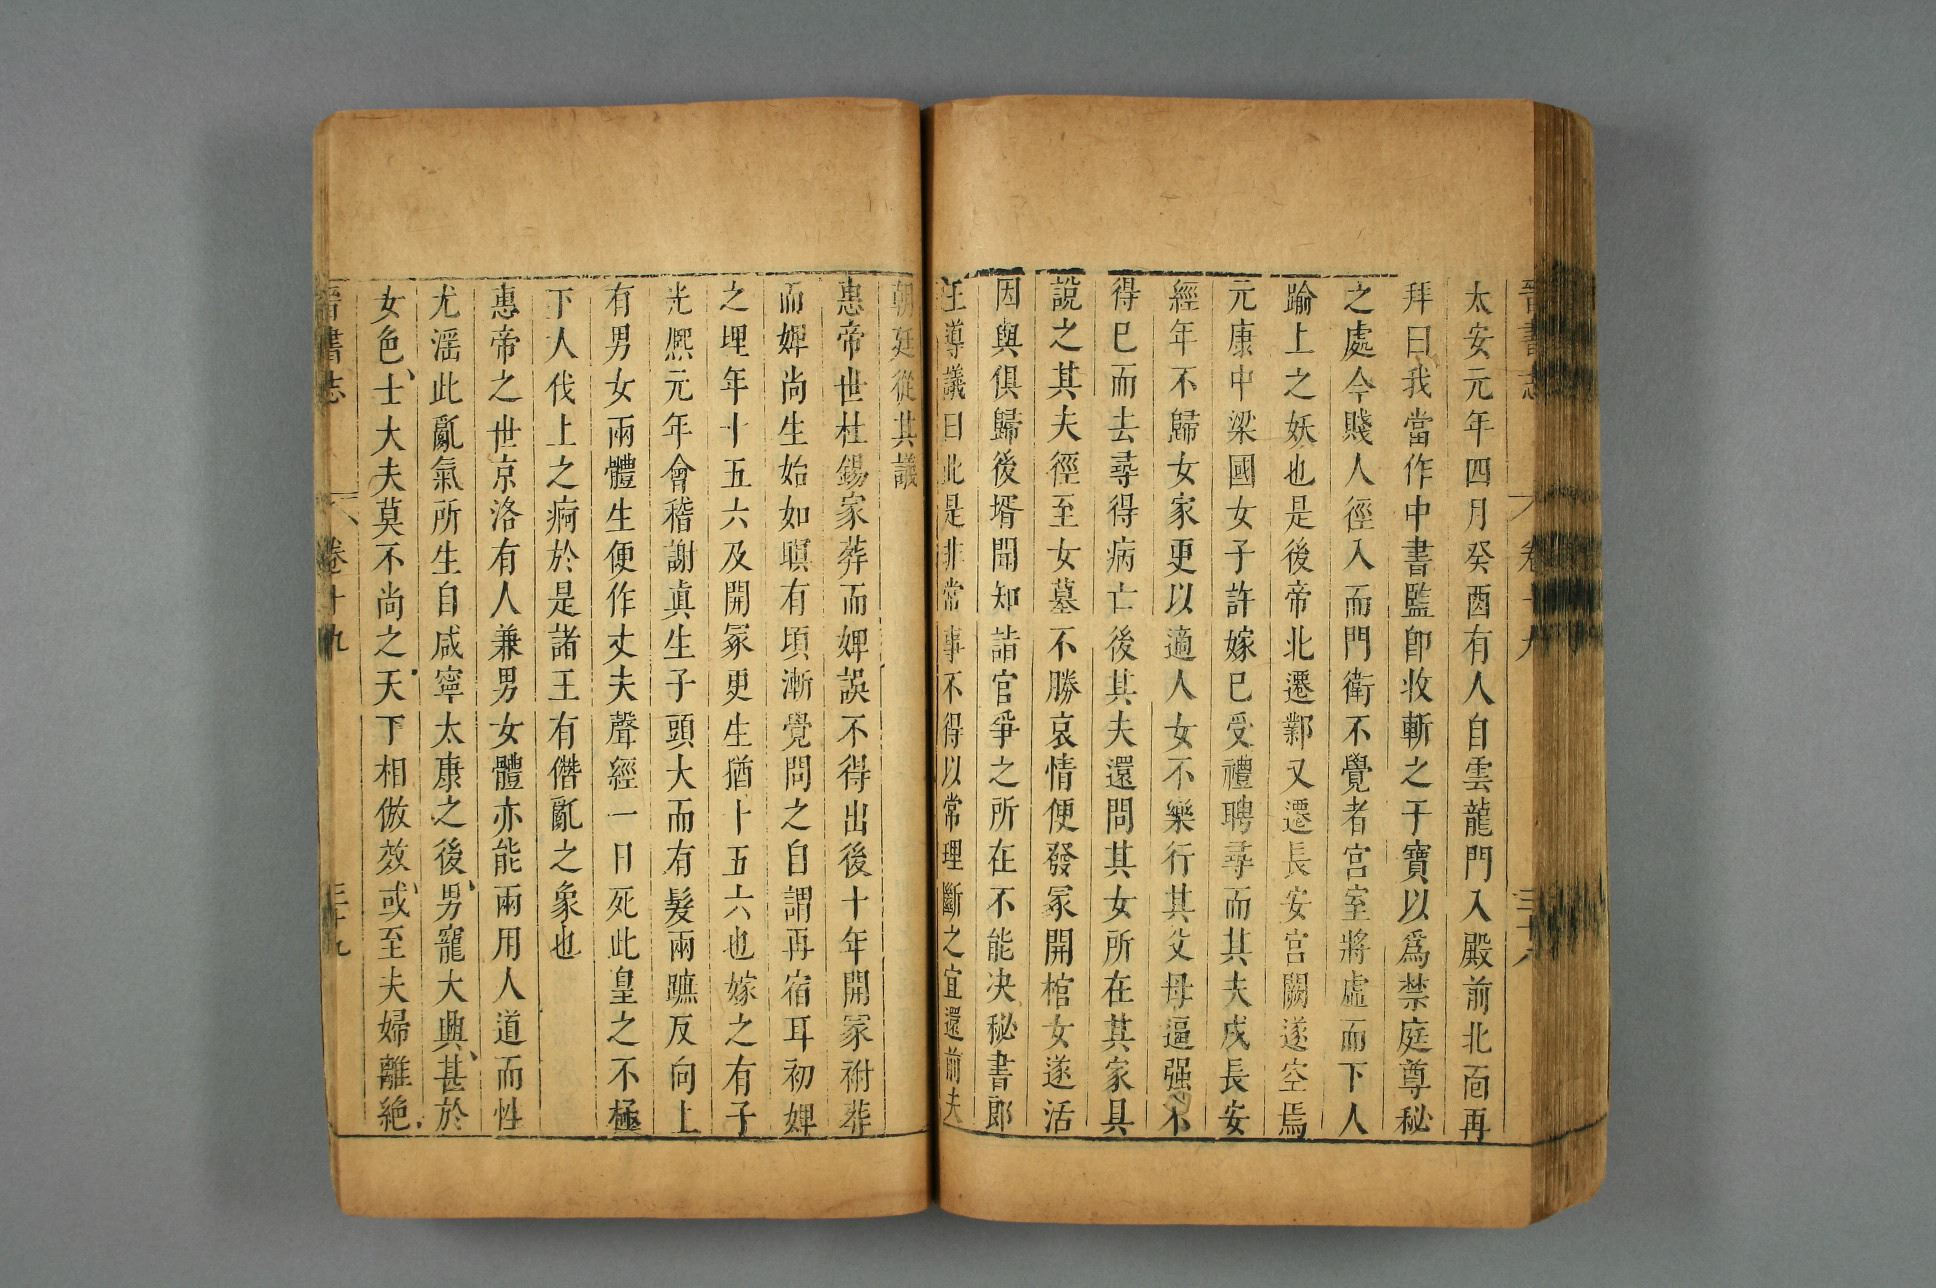 晉書志 卷十九 三十八
太安元年四月癸酉有人自雲龍門入殿前北面再
拜曰我當作中書監卽收斬之干寶以爲禁庭尊秘
之處今賤人徑入而門衛不覺者宮室將虛而下人
踰上之妖也是後帝北遷鄴又遷長安宮闕遂空焉
元康中梁國女子許嫁已受禮聘尋而其夫戍長安
經年不歸女家更以適人女不樂行其父母逼强不
得已而去尋得病亡後其夫還問其女所在其家具
說之其夫徑至女墓不勝哀情便發冢開棺女遂活
因與俱歸後壻聞知詣官爭之所在不能决秘書郎
王導議曰此是非常事不得以常理斷之宜還前夫
朝廷從其議
惠帝世杜錫家葬而婢誤不得出後十年開冢祔葬
而婢尚生始如瞑有頃漸覺問之自謂再宿耳初婢
之埋年十五六及開冢更生猶十五六也嫁之有子
光熙元年會稽謝眞生子頭大而有髮兩蹠反向上
有男女兩體生便作丈夫聲經一日死此皇之不極
下人伐上之痾於是諸王有僭亂之象也
惠帝之世京洛有人兼男女體亦能兩用人道而性
尤淫此亂氣所生自咸寧太康之後男寵大興甚於
女色士大夫莫不尚之天下相倣效或至夫婦離絶
晉書志 卷十九 三十九